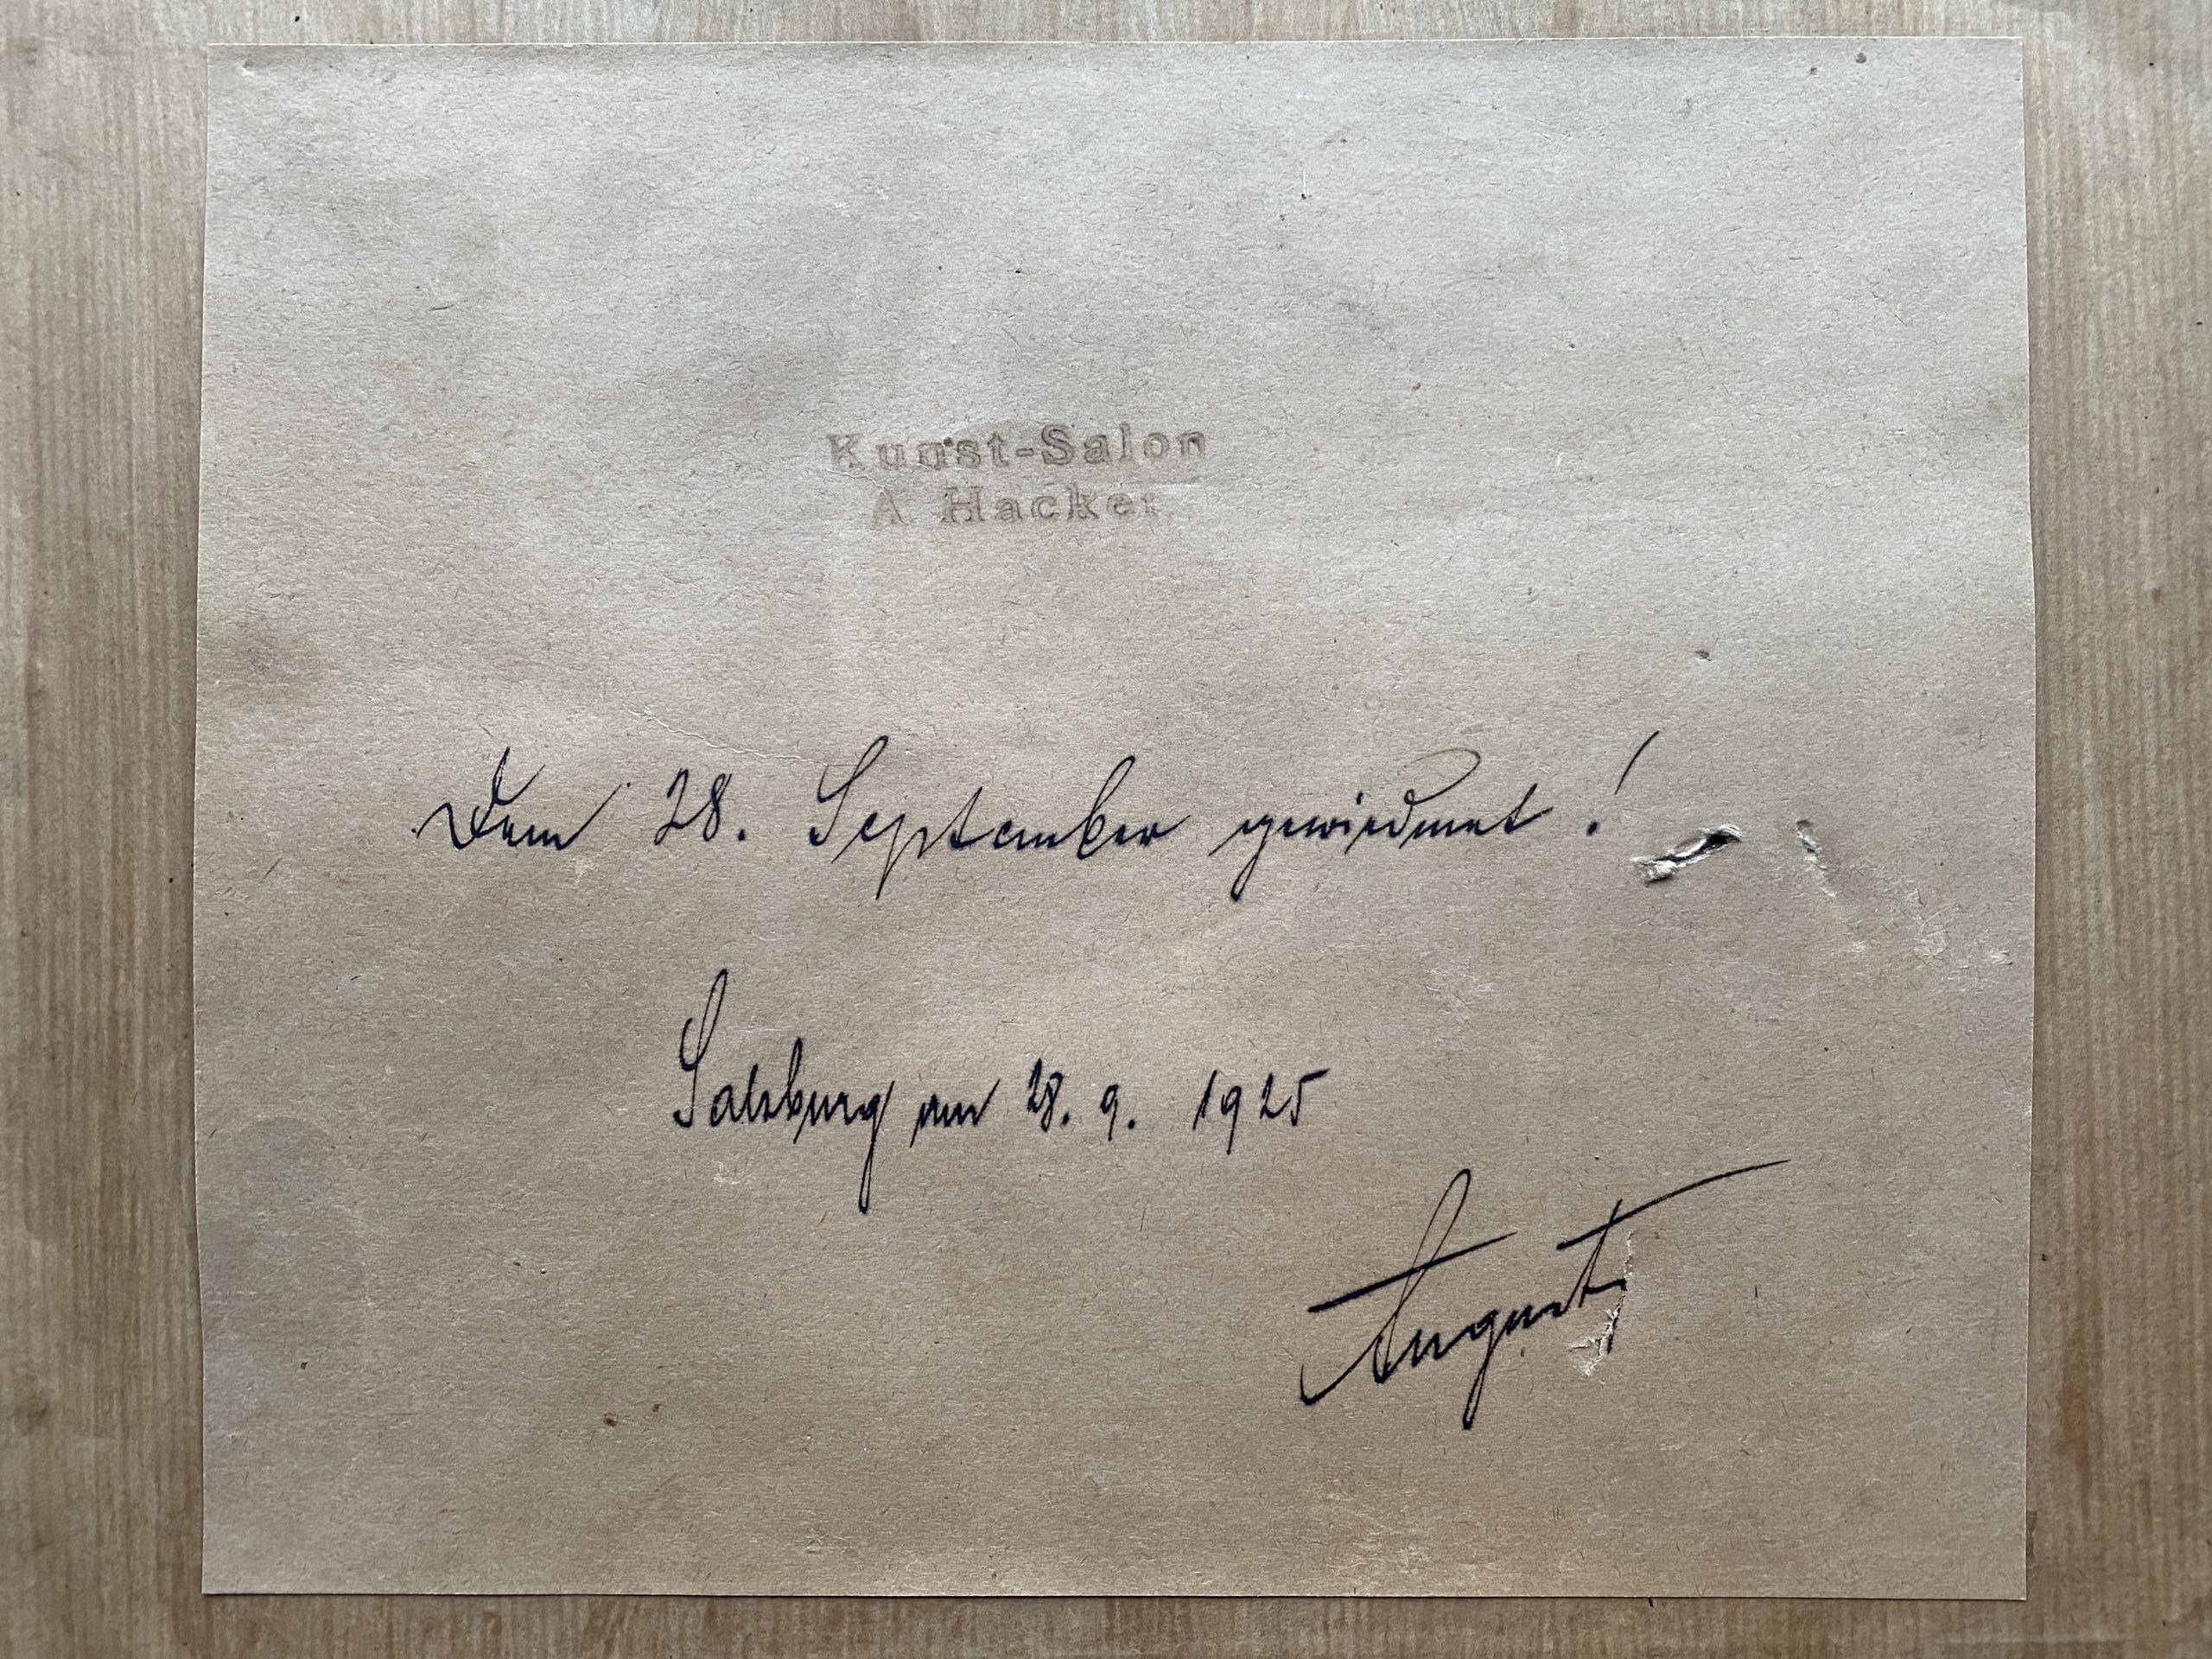 Kunst-Salon
A Hacker
Dem 28. September gewidmet!
Salzburg am 28. 9. 1925
August